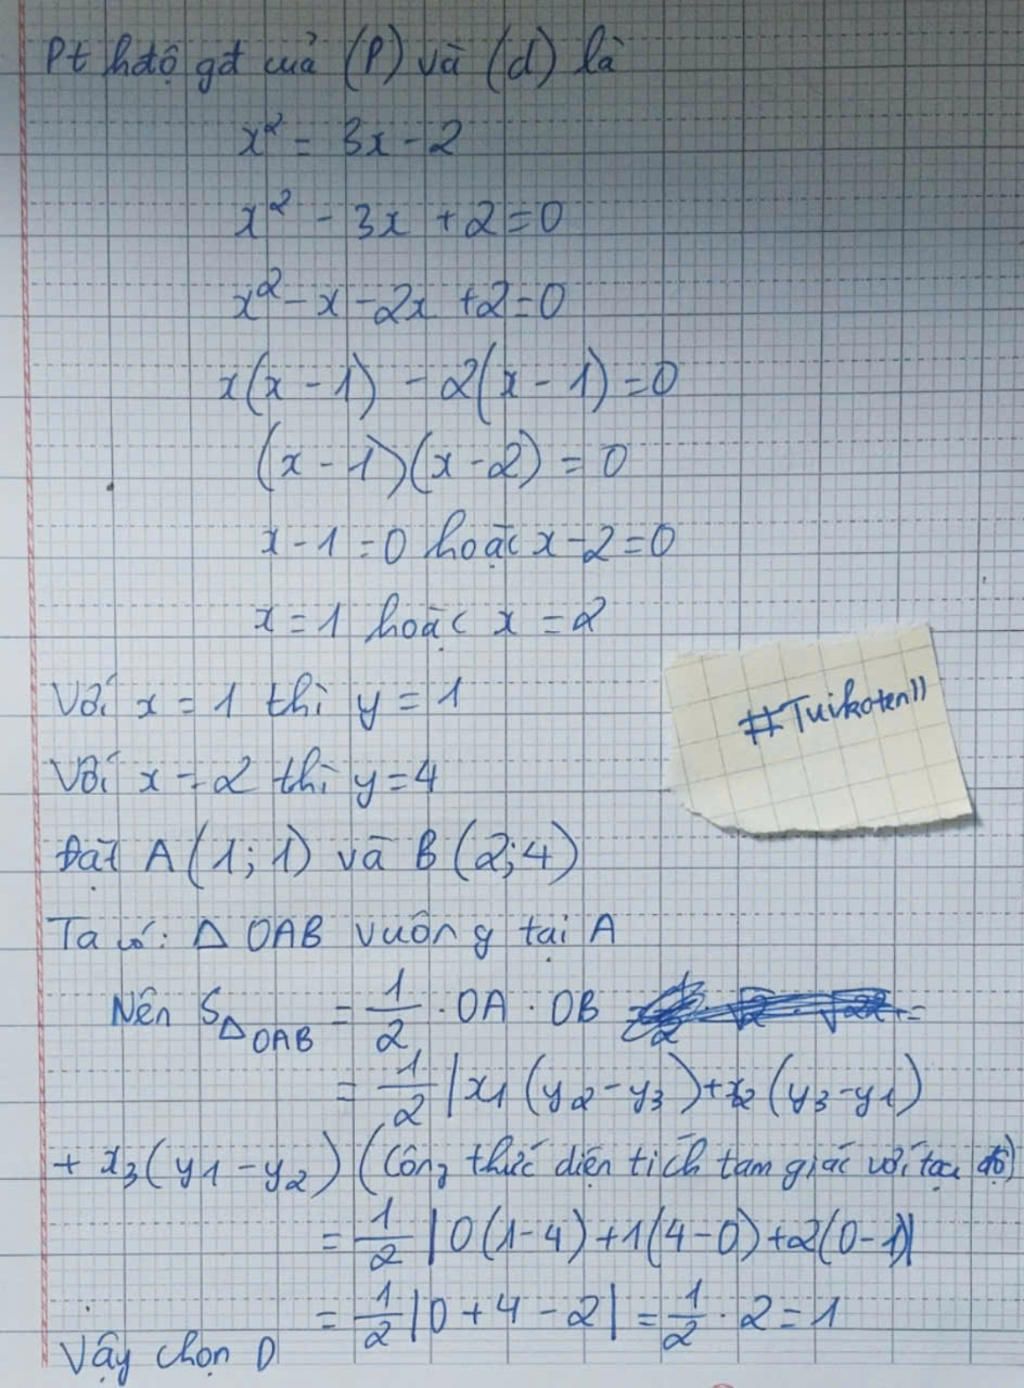 Pt hđộ gđ của (P) và (d) là
x² = 3x - 2
x² - 3x + 2 = 0
x² - x - 2x + 2 = 0
x(x - 1) - 2(x - 1) = 0
(x - 1)(x - 2) = 0
x - 1 = 0 hoặc x - 2 = 0
x = 1 hoặc x = 2
Với x = 1 thì y = 1
#Tuikoten11
Với x = 2 thì y = 4
Đặt A(1; 1) và B(2; 4)
Ta có: Δ OAB vuông tại A
Nên S_ΔOAB = 1/2 · OA · OB =
= 1/2 |x₁(y₂ - y₃) + x₂(y₃ - y₁)
+ x₃(y₁ - y₂) (Công thức diện tích tam giác với tọa độ)
= 1/2 |0(1 - 4) + 1(4 - 0) + 2(0 - 1)|
= 1/2 |0 + 4 - 2| = 1/2 · 2 = 1
Vậy chọn D